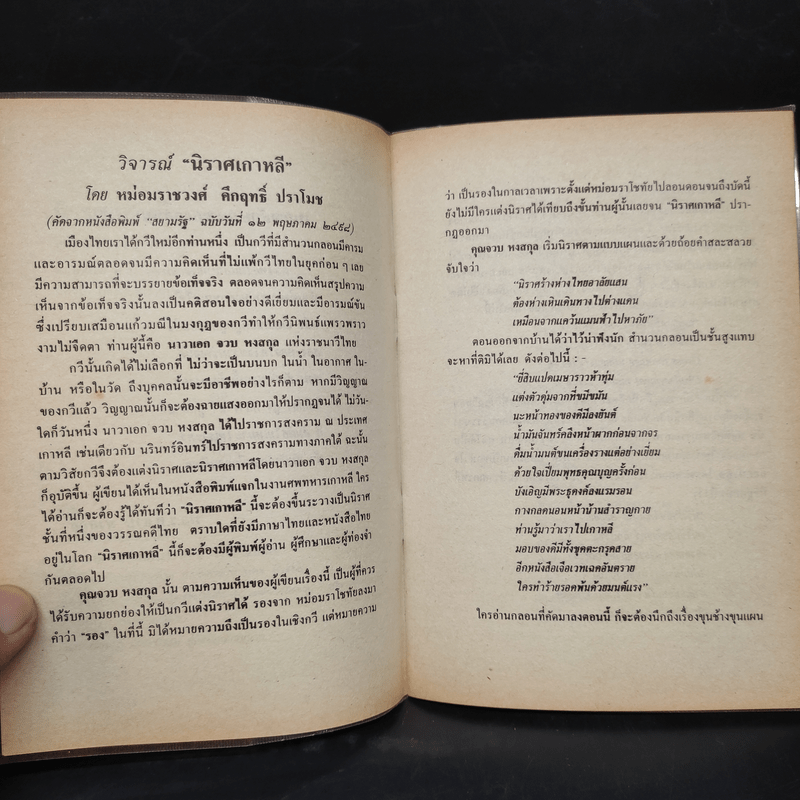 วิจารณ์ “นิราศเกาหลี”
โดย หม่อมราชวงศ์ คึกฤทธิ์ ปราโมช
(คัดจากหนังสือพิมพ์ “สยามรัฐ” ฉบับวันที่ ๑๒ พฤษภาคม ๒๔๙๘)
เมืองไทยเราได้กวีใหม่อีกท่านหนึ่ง เป็นกวีที่มีสำนวนกลอนมีคารม
และอารมณ์ตลอดจนมีความคิดเห็นที่ไม่แพ้กวีไทยในยุคก่อน ๆ เลย
มีความสามารถที่จะบรรยายข้อเท็จจริง ตลอดจนความคิดเห็นสรุปความ
เห็นจากข้อเท็จจริงนั้นลงเป็นคติสอนใจอย่างดีเยี่ยมและมีอารมณ์ขัน
ซึ่งเปรียบเสมือนแก้วมณีในมงกุฎของกวีทำให้กวีนิพนธ์แพรวพราว
งามไม่จืดตา ท่านผู้นี้คือ นาวาเอก จวบ หงสกุล แห่งราชนาวีไทย
กวีนั้นเกิดได้ไม่เลือกที่ ไม่ว่าจะเป็นบนบก ในน้ำ ในอากาศ ใน-
บ้าน หรือในวัด ถึงบุคคลนั้นจะมีอาชีพอย่างไรก็ตาม หากมีวิญญาณ
ของกวีแล้ว วิญญาณนั้นก็จะต้องฉายแสงออกมาให้ปรากฏจนได้ ไม่วัน-
ใดก็วันหนึ่ง นาวาเอก จวบ หงสกุล ได้ไปราชการสงคราม ณ ประเทศ
เกาหลี เช่นเดียวกับ นรินทร์อินทร์ไปราชการสงครามทางภาคใต้ ฉะนั้น
ตามวิสัยกวีจึงต้องแต่งนิราศและนิราศเกาหลีโดยนาวาเอก จวบ หงสกุล
ก็อุบัติขึ้น ผู้เขียนได้เห็นในหนังสือพิมพ์แจกในงานศพทหารเกาหลี ใคร
ได้อ่านก็จะต้องรู้ได้ทันทีว่า “นิราศเกาหลี” นี้จะต้องขึ้นระวางเป็นนิราศ
ชั้นที่หนึ่งของวรรณคดีไทย ตราบใดที่ยังมีภาษาไทยและหนังสือไทย
อยู่ในโลก “นิราศเกาหลี” นี้ก็จะต้องมีผู้พิมพ์ผู้อ่าน ผู้ศึกษาและผู้ท่องจำ
กันตลอดไป
คุณจวบ หงสกุล นั้น ตามความเห็นของผู้เขียนเรื่องนี้ เป็นผู้ที่ควร
ได้รับความยกย่องให้เป็นกวีแต่งนิราศได้ รองจาก หม่อมราโชทัยลงมา
คำว่า “รอง” ในที่นี้ มิได้หมายความถึงเป็นรองในเชิงกวี แต่หมายความ
ว่า เป็นรองในกาลเวลาเพราะตั้งแต่หม่อมราโชทัยไปลอนดอนจนถึงบัดนี้
ยังไม่มีใครแต่งนิราศได้เทียบถึงขั้นท่านผู้นั้นเลยจน “นิราศเกาหลี” ปรา-
กฏออกมา
คุณจวบ หงสกุล เริ่มนิราศตามแบบแผนและด้วยถ้อยคำสละสลวย
จับใจว่า
“นิราศร้างห่างไทยอาลัยแสน
ต้องห่างเหินเดินทางไปต่างแดน
เหมือนจากแคว้นแมนฟ้าไปหาภัย”
ตอนออกจากบ้านได้ว่าไว้น่าฟังนัก สำนวนกลอนเป็นชั้นสูงแทบ
จะหาที่ติมิได้เลย ดังต่อไปนี้ : -
“ยี่สิบแปดเมษาราวห้าทุ่ม
แต่งตัวตุ่มจากที่ขมีขมัน
นะหน้าทองของดีมีลงยันต์
น้ำมันจันทร์คลึงหน้าผากก่อนจากจร
ดื่มน้ำมนต์ขนเครื่องรางแต่อย่างเยี่ยม
ด้วยใจเปี่ยมพุทธคุณบุญครั้งก่อน
บังเอิญมีพระธุดงค์ลงแรมรอน
กางกลดนอนหน้าบ้านสำราญกาย
ท่านรู้มาว่าเราไปเกาหลี
มอบของดีมีทั้งชุดตะกรุดสาย
อีกหนังสือเจือเวทเฉดอันตราย
ใครทำร้ายรอดพ้นด้วยมนต์แรง”
ใครอ่านกลอนที่คัดมาลงตอนนี้ ก็จะต้องนึกถึงเรื่องขุนช้างขุนแผน